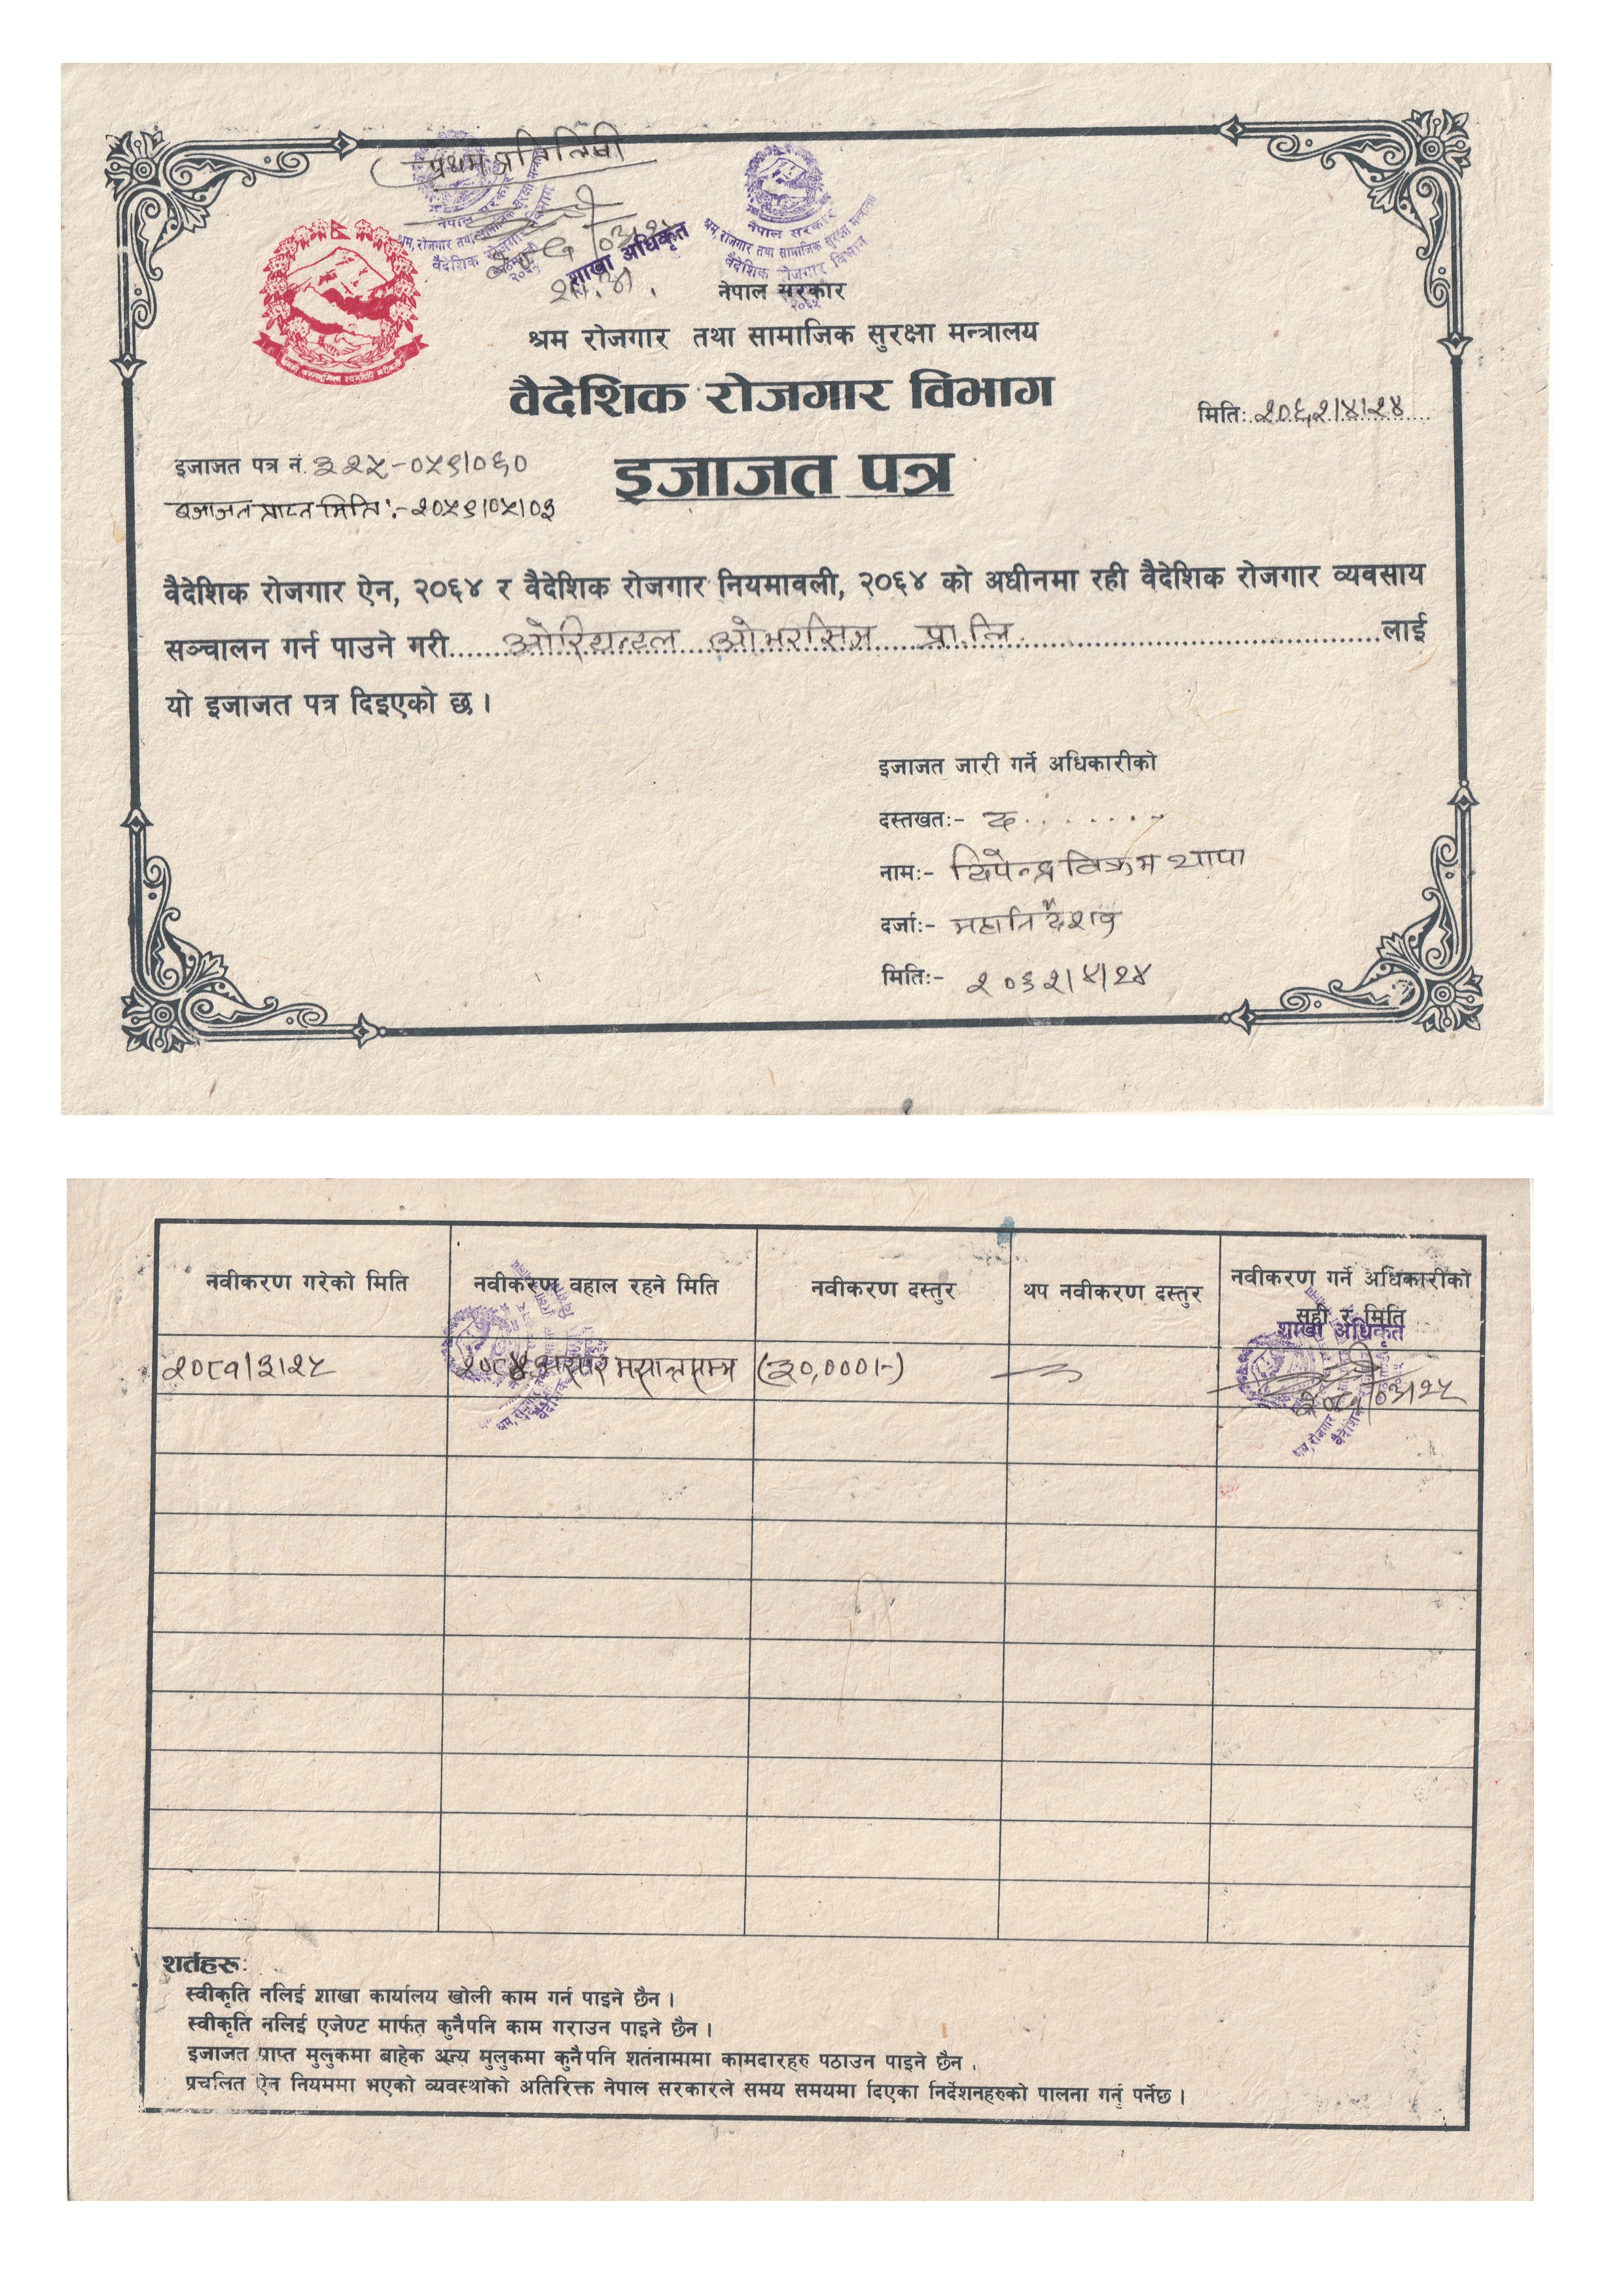 प्रथम प्रतिलिपी
शाखा अधिकृत
नेपाल सरकार
श्रम, रोजगार तथा सामाजिक सुरक्षा मन्त्रालय
वैदेशिक रोजगार विभाग
नेपाल सरकार
श्रम रोजगार तथा सामाजिक सुरक्षा मन्त्रालय
वैदेशिक रोजगार विभाग
मितिः २०६२।४।२४
इजाजत पत्र नं. ३२५-०५९।०६०
इजाजत पत्र
इजाजत प्राप्त मिति :- २०५९।०५।०३
वैदेशिक रोजगार ऐन, २०६४ र वैदेशिक रोजगार नियमावली, २०६४ को अधीनमा रही वैदेशिक रोजगार व्यवसाय
सञ्चालन गर्न पाउने गरी ओरियन्टल ओभरसिज प्रा.लि. लाई
यो इजाजत पत्र दिइएको छ ।
इजाजत जारी गर्ने अधिकारीको
दस्तखतः- द.......
नामः- दिपेन्द्र विक्रम थापा
दर्जाः- महानिर्देशक
मितिः- २०६२।४।२४
नवीकरण गरेको मिति नवीकरण वहाल रहने मिति नवीकरण दस्तुर थप नवीकरण दस्तुर नवीकरण गर्ने अधिकारीको
सही र मिति
शाखा अधिकृत
२०८१।३।२५ मसान्तसम्म (३०,०००।-)
२०८१।०३।२५
शर्तहरू:
स्वीकृति नलिई शाखा कार्यालय खोली काम गर्न पाइने छैन ।
स्वीकृति नलिई एजेण्ट मार्फत कुनैपनि काम गराउन पाइने छैन ।
इजाजत प्राप्त मुलुकमा बाहेक अन्य मुलुकमा कुनैपनि शर्तनामामा कामदारहरु पठाउन पाइने छैन ।
प्रचलित ऐन नियममा भएको व्यवस्थाको अतिरिक्त नेपाल सरकारले समय समयमा दिएका निर्देशनहरुको पालना गर्नु पर्नेछ ।